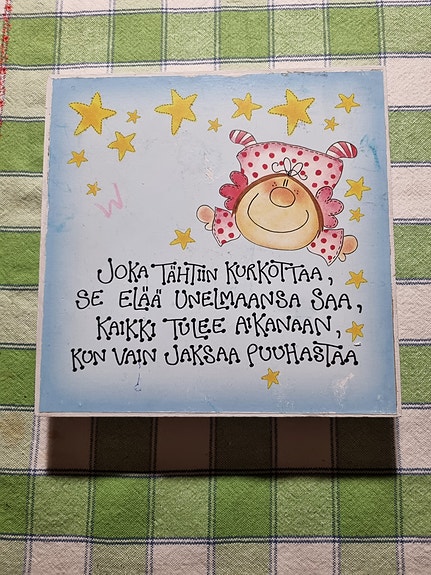 JOKA TÄHTIIN KURKOTTAA,
SE ELÄÄ UNELMAANSA SAA,
KAIKKI TULEE AIKANAAN,
KUN VAIN JAKSAA PUUHASTAA